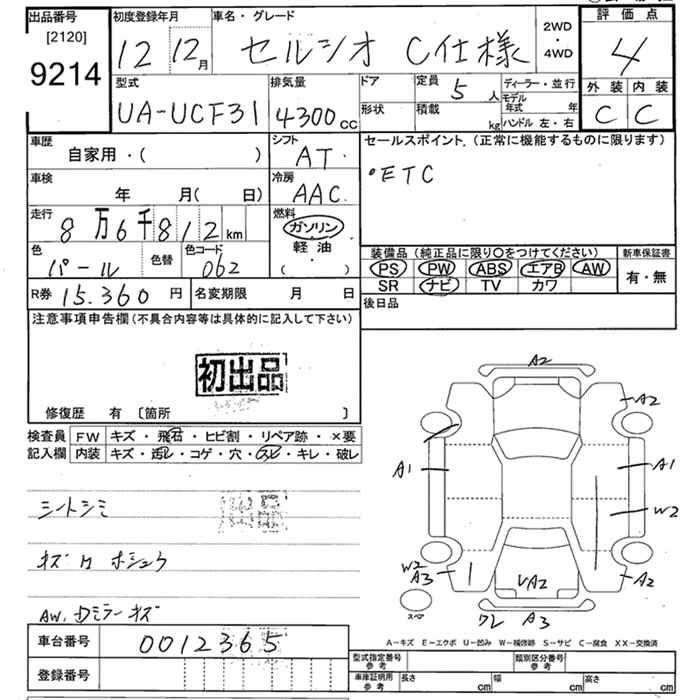 出品番号
[2120]
9214
初度登録年月
12 12月
車名・グレード
セルシオ C仕様
2WD
・
4WD
評価点
4
外装 内装
C C
型式
UA-UCF31
排気量
4300cc
ドア
形状
定員
5人
積載
kg
ディーラー・並行
モデル年式 年
ハンドル 左・右
車歴
自家用・( )
シフト
AT
セールスポイント (正常に機能するものに限ります)
・ETC
車検
年 月( 日)
冷房
AAC
走行
8万6千812km
燃料
ガソリン
軽油
( )
色
パール
色替
色コード
062
装備品 (純正品に限り○をつけてください)
PS PW ABS エアB AW
SR ナビ TV カワ
新車保証書
有・無
R券 15.360円
名変期限 月 日
後日品
注意事項申告欄(不具合内容等は具体的に記入して下さい)
初出品
修復歴 有 〔箇所 〕
検査員記入欄
FW キズ・飛石・ヒビ割・リペア跡・×要
内装 キズ・汚レ・コゲ・穴・スレ・キレ・破レ
シートシミ
キズ用ホシュウ
AW. Dミラーキズ
車台番号 0012365
登録番号
A2
A2
A1
A1
W2
W2
A3
A2
VA2
ワレ A3
スペア
A-キズ E-エクボ U-凹み W-補修跡 S-サビ C-腐食 XX-交換済
型式指定番号 参考
類別区分番号 参考
車庫証明用 参考
長さ cm
幅 cm
高さ cm